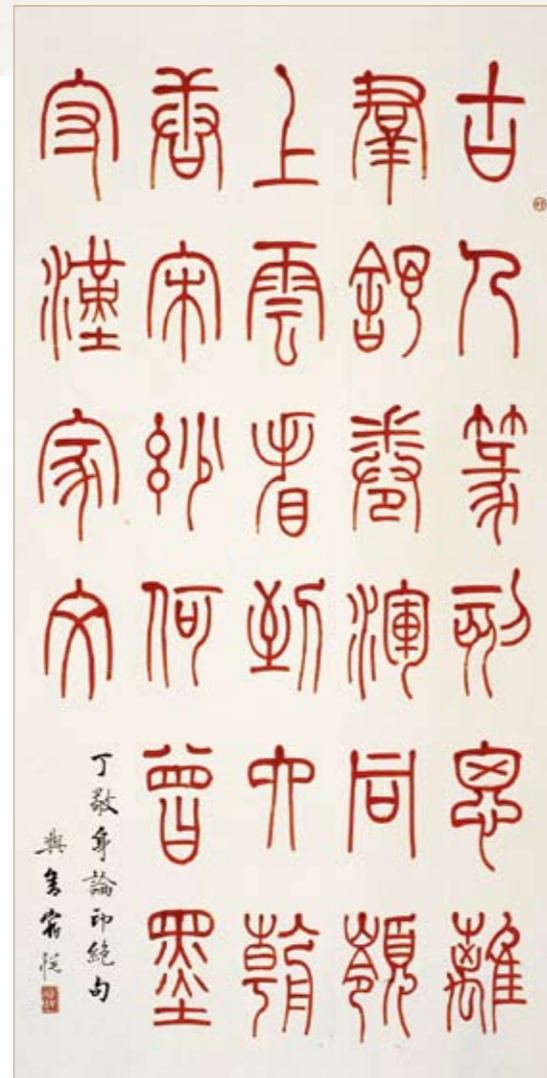 古人篆刻思離
羣舒卷渾同嶺
上雲看到六朝
唐宋妙何曾墨
守漢家文
丁敬身論印絕句